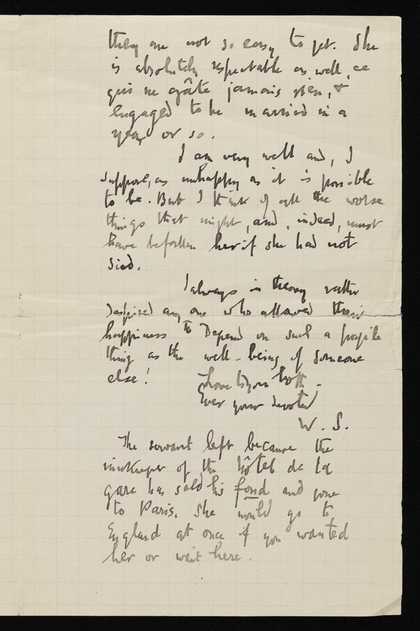 they are not so easy to get. She
is absolutely respectable as well, ce
qui ne gâte jamais rien, &
engaged to be married in a
year or so.
I am very well and, I
suppose, as unhappy as it is possible
to be. But I think of all the worse
things that might, and, indeed, must
have befallen her if she had not
died.
I always in theory rather
despised any one who allowed their
happiness to depend on such a fragile
thing as the well-being of someone
else!
Love to you both.
Ever your devoted
W. S.
The servant left because the
innkeeper of the Hôtel de la
gare has sold his fond and gone
to Paris. She would go to
England at once if you wanted
her or wait here.